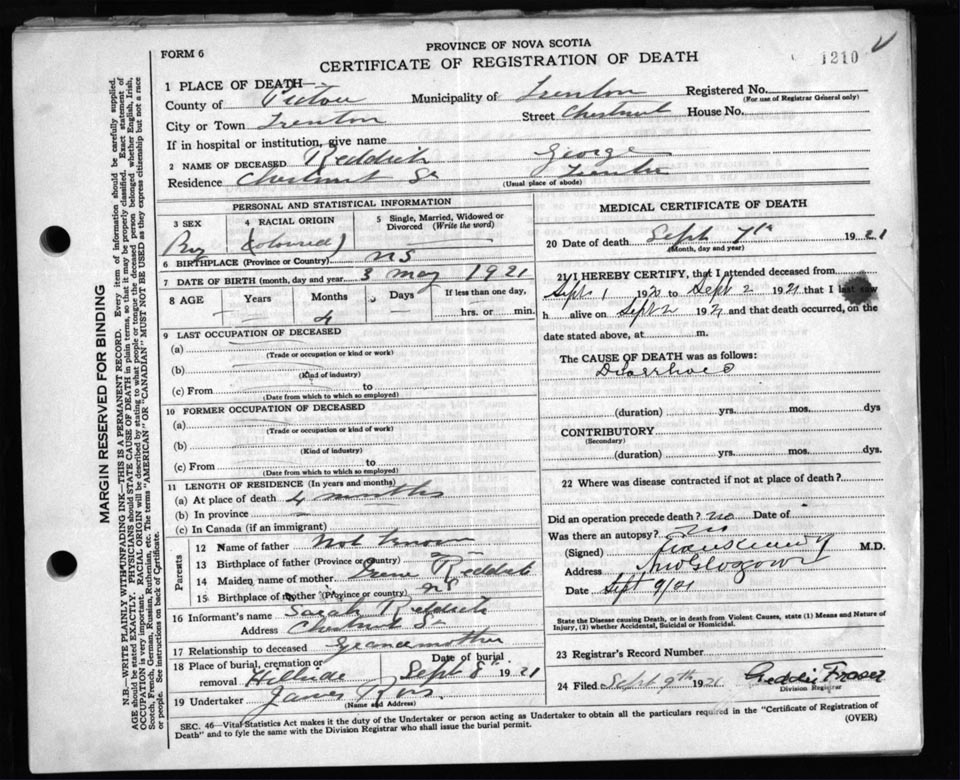 FORM 6
PROVINCE OF NOVA SCOTIA
CERTIFICATE OF REGISTRATION OF DEATH
1210
MARGIN RESERVED FOR BINDING
N.B.—WRITE PLAINLY WITH UNFADING INK—THIS IS A PERMANENT RECORD. Every item of information should be carefully supplied.
AGE should be stated EXACTLY. PHYSICIANS should STATE CAUSE OF DEATH in plain terms, so that it may be properly classified. Exact statement of
OCCUPATION is very important. RACIAL ORIGIN will be described by stating to what people or tongue the deceased person belonged whether English, Irish,
Scotch, French, German, Russian, Ruthenian, etc. The terms "AMERICAN" OR "CANADIAN" MUST NOT BE USED as they express citizenship but not a race
or people. See instructions on back of Certificate.
1 PLACE OF DEATH—
County of Pictou Municipality of Trenton Registered No.
(For use of Registrar General only)
City or Town Trenton Street Chestnut House No.
If in hospital or institution, give name
2 NAME OF DECEASED Reddick George
Residence Chestnut St Trenton
(Usual place of abode)
PERSONAL AND STATISTICAL INFORMATION
3 SEX Boy
4 RACIAL ORIGIN (Coloured)
5 Single, Married, Widowed or Divorced (Write the word)
6 BIRTHPLACE (Province or Country) NS
7 DATE OF BIRTH (month, day and year) 3 May 1921
8 AGE Years Months 4 Days If less than one day,
hrs. or min.
9 LAST OCCUPATION OF DECEASED
(a)
(Trade or occupation or kind or work)
(b)
(Kind of industry)
(c) From to
(Date from which to which so employed)
10 FORMER OCCUPATION OF DECEASED
(a)
(Trade or occupation or kind of work)
(b)
(Kind of industry)
(c) From to
(Date from which to which so employed)
11 LENGTH OF RESIDENCE (In years and months)
(a) At place of death 4 months
(b) In province
(c) In Canada (if an immigrant)
Parents
12 Name of father Not known
13 Birthplace of father (Province or Country)
14 Maiden name of mother Irene Reddick
15 Birthplace of mother (Province or country) NS
16 Informant's name Sarah Reddick
Address Chestnut St
17 Relationship to deceased Grandmother
18 Place of burial, cremation or removal Hillside Date of burial Sept 8th 1921
19 Undertaker James
(Name and Address)
MEDICAL CERTIFICATE OF DEATH
20 Date of death Sept 7th 1921
(Month, day and year)
21 I HEREBY CERTIFY, that I attended deceased from
Sept 1 1920 to Sept 2 1921 that I last saw
h alive on Sept 2 1921 and that death occurred, on the
date stated above, at m.
The CAUSE OF DEATH was as follows:
Diarrhoea
(duration) yrs. mos. dys
CONTRIBUTORY
(Secondary)
(duration) yrs. mos. dys.
22 Where was disease contracted if not at place of death?
Did an operation precede death? no Date of
Was there an autopsy? No
(Signed) M.D.
Address New Glasgow
Date Sept 9/21
State the Disease causing Death, or in death from Violent Causes, state (1) Means and Nature of
Injury, (2) whether Accidental, Suicidal or Homicidal.
23 Registrar's Record Number
24 Filed Sept 9th 1921 Fraser
Division Registrar
SEC. 46—Vital Statistics Act makes it the duty of the Undertaker or person acting as Undertaker to obtain all the particulars required in the "Certificate of Registration of
Death" and to fyle the same with the Division Registrar who shall issue the burial permit.
(OVER)